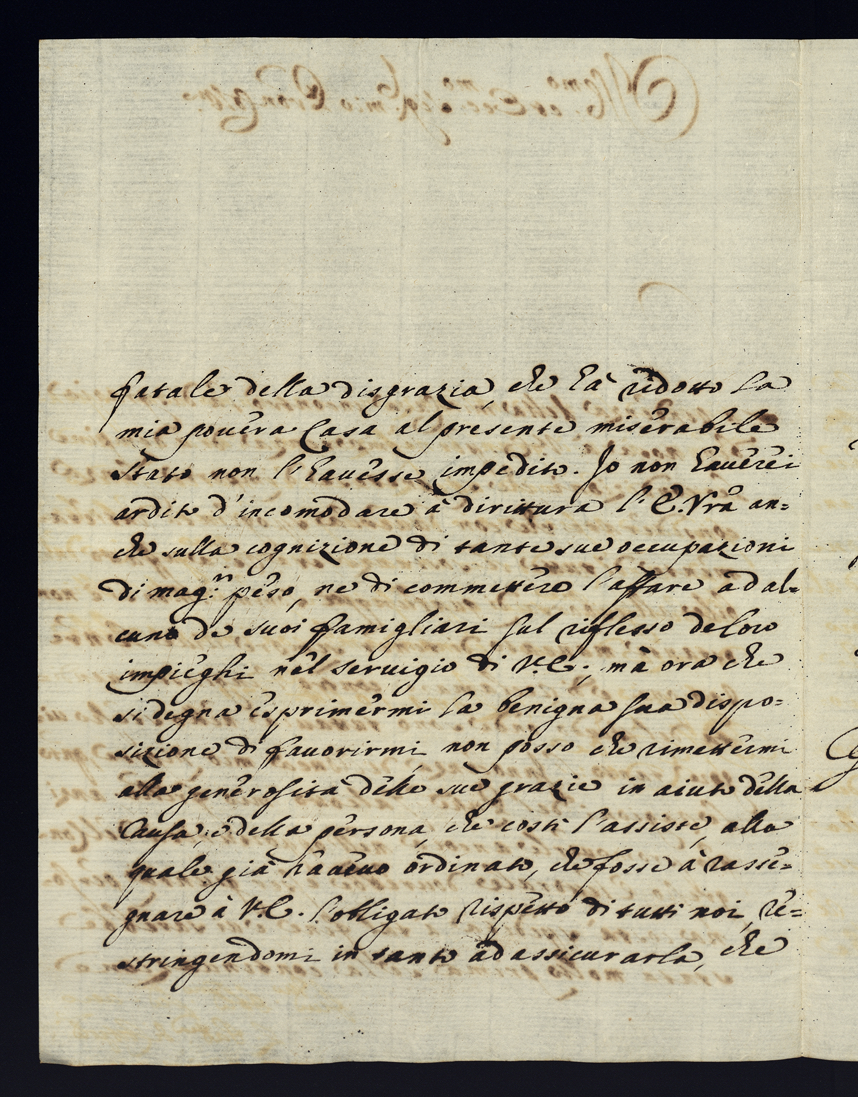 fatale della disgrazia, che hà ridotto la
mia povera Casa al presente miserabile
stato non l'havesse impedito. Io non haverei
ardito d'incomodare à dirittura l'E. Vrã an=
che sulla cognizione di tante sue occupazioni
di mag.r peso, ne di commettere l'affare ad al=
cuno de suoi famigliari sul riflesso de loro
impieghi nel servigio di V.E.; mà ora che
si degna esprimermi la benigna sua dispo=
sizione di favorirmi, non posso che rimettermi
alla generosità delle sue grazie in aiuto della
Causa, e della persona, che costì l'assiste, alla
quale già havevo ordinato, che fosse à rasse=
gnare à V.E. l'obligato rispetto di tutti noi, re=
stringendomi in tanto ad assicurarla, che